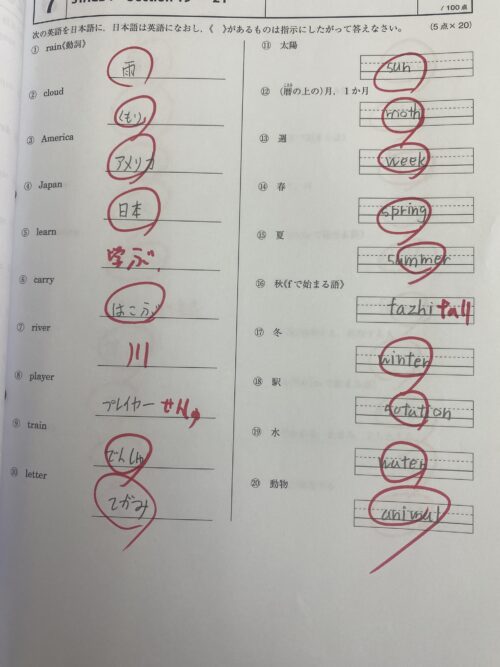 7
Section 19 ~ 21
/100点
次の英語を日本語に,日本語は英語になおし,《 》があるものは指示にしたがって答えなさい。
(5点×20)
① rain《動詞》
雨
② cloud
くもり
③ America
アメリカ
④ Japan
日本
⑤ learn
学ぶ
⑥ carry
はこぶ
⑦ river
川
⑧ player
プレイヤー せんしゅ
⑨ train
でんしゃ
⑩ letter
てがみ
⑪ 太陽
sun
⑫ (暦の上の)月, 1か月
こよみ
moth
⑬ 週
week
⑭ 春
spring
⑮ 夏
summer
⑯ 秋《fで始まる語》
fazhi fall
⑰ 冬
winter
⑱ 駅
⑲ 水
water
⑳ 動物
animal